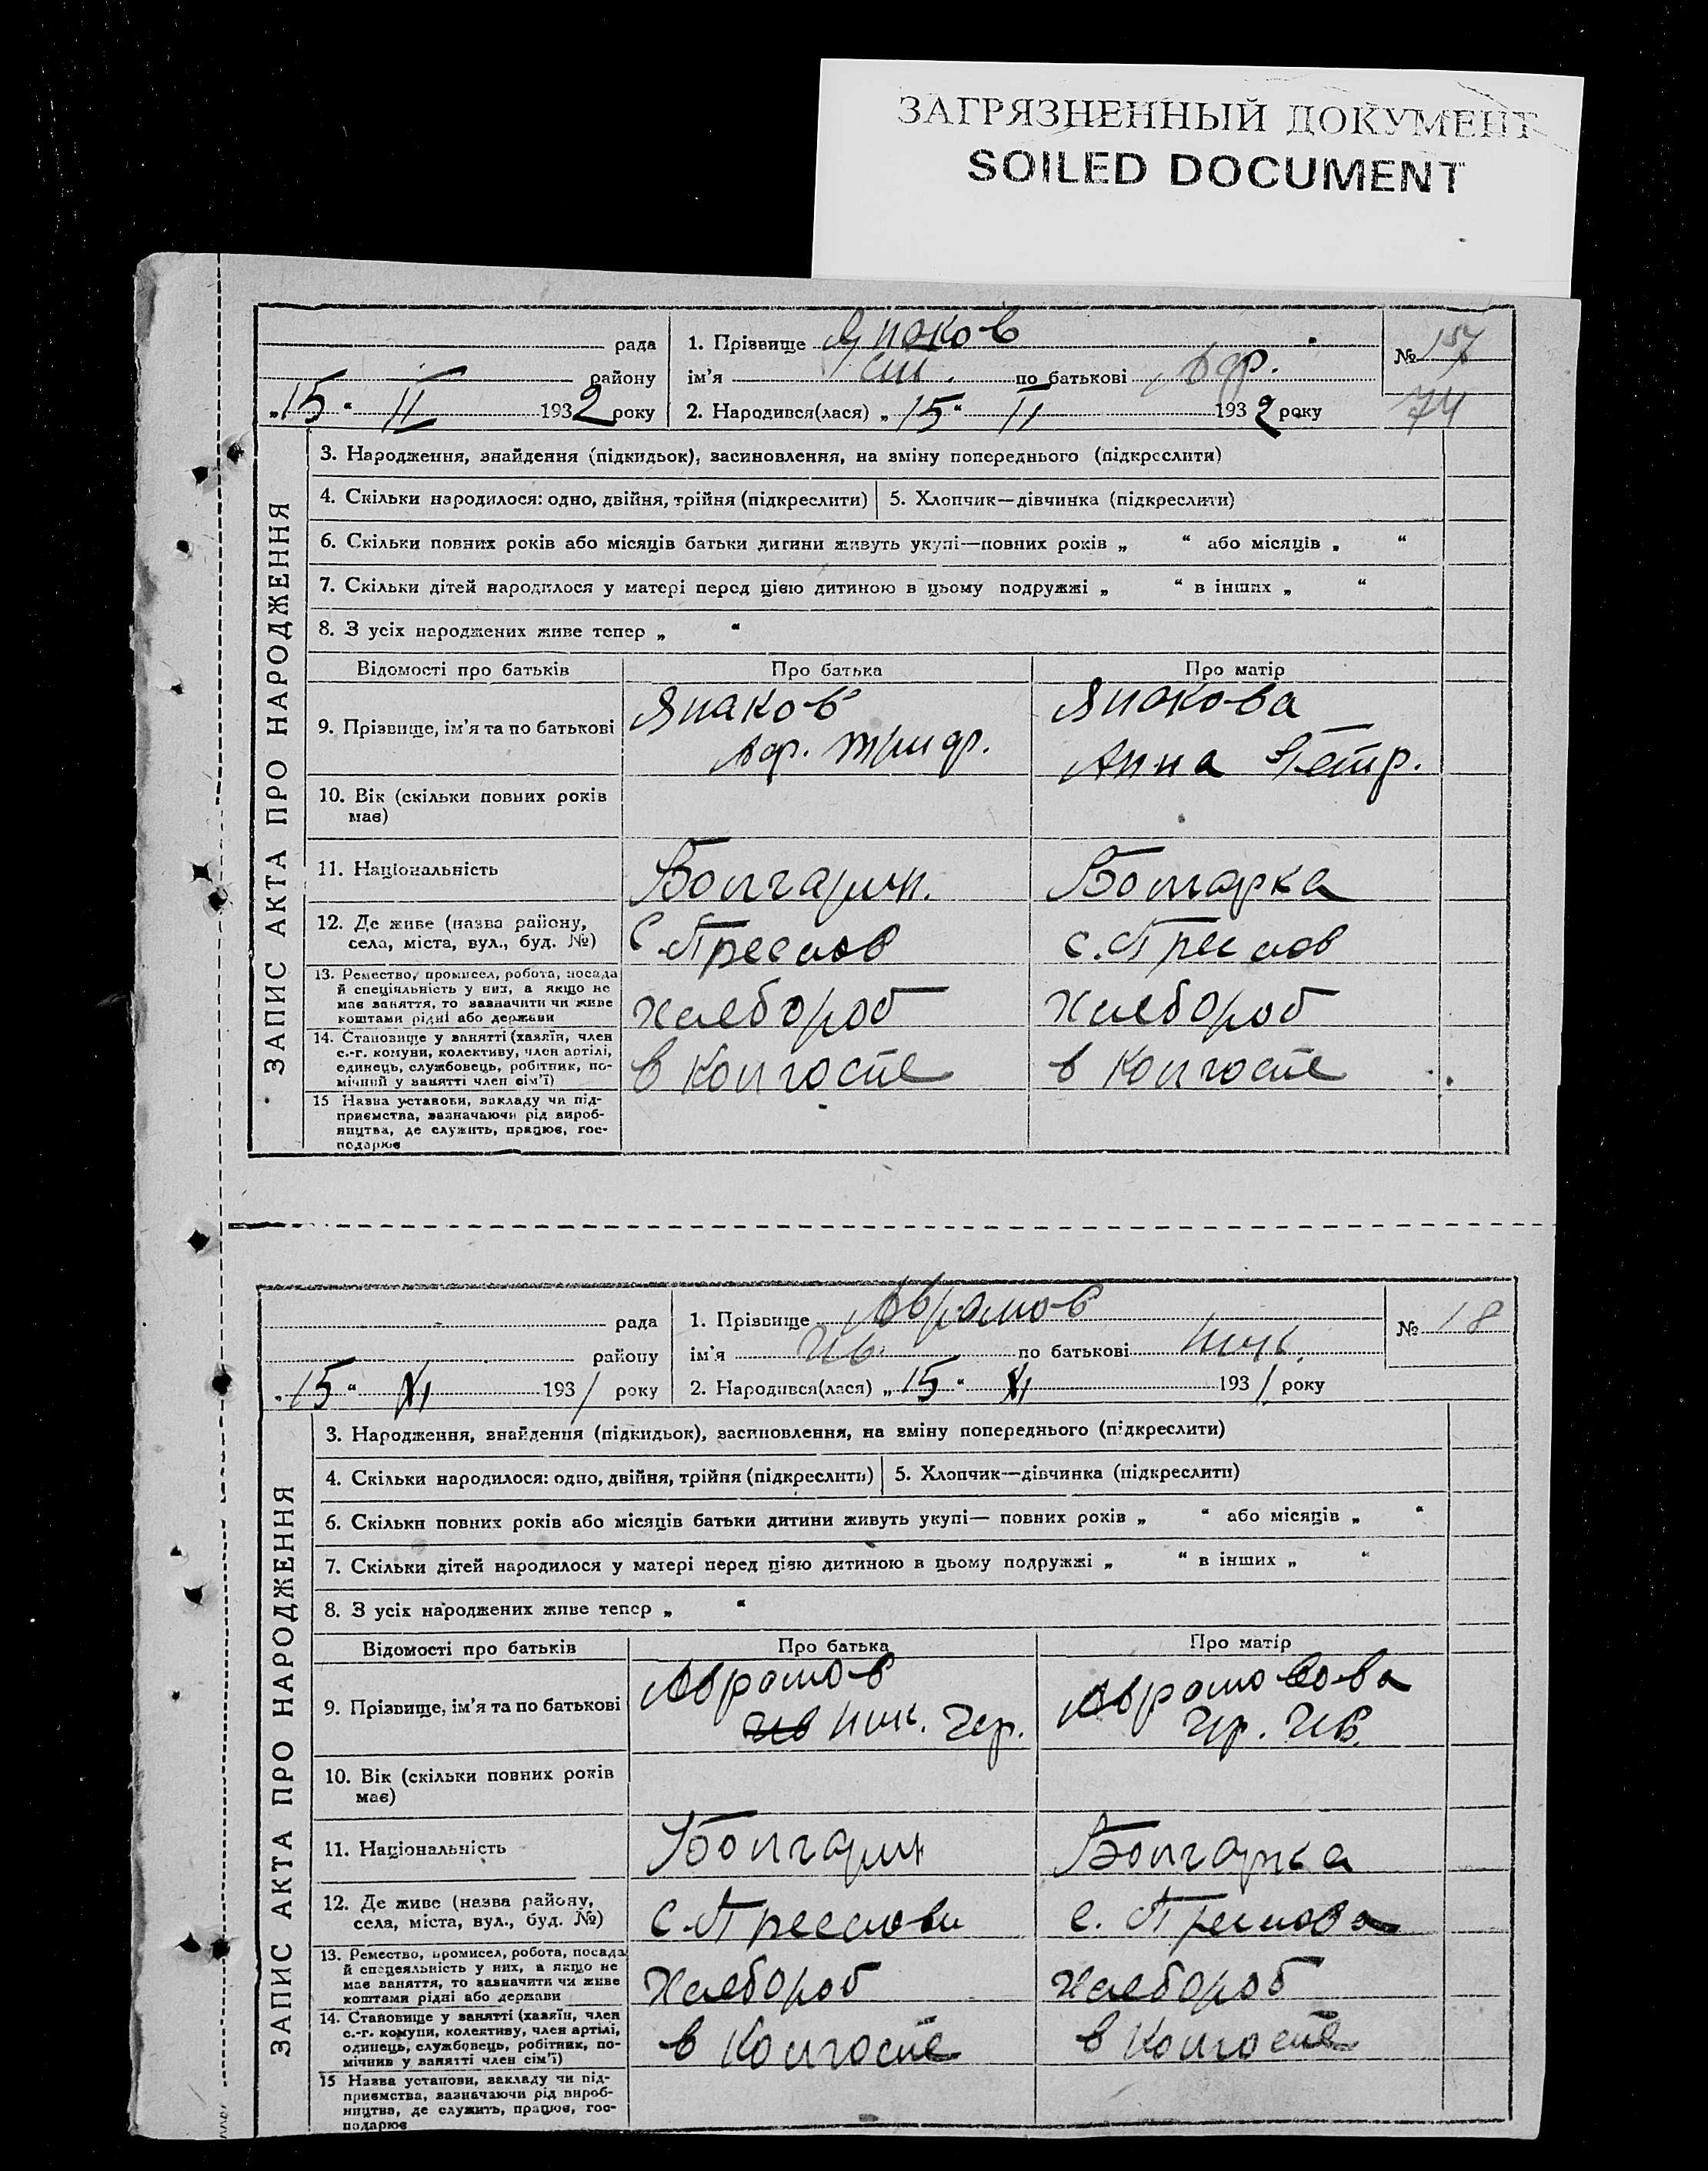 ЗАГРЯЗНЕННЫЙ ДОКУМЕНТ
SOILED DOCUMENT
рада
району
„15“ II 1932 року
1. Прізвище Япаков
ім’я по батькові
2. Народився(лася) „15“ II 1932 року
№ 157
74
ЗАПИС АКТА ПРО НАРОДЖЕННЯ
3. Народження, знайдення (підкидьок), засиновлення, на зміну попереднього (підкреслити)
4. Скільки народилося: одно, двійня, трійня (підкреслити)
5. Хлопчик—дівчинка (підкреслити)
6. Скільки повних років або місяців батьки дитини живуть укупі—повних років „ “ або місяців „ “
7. Скільки дітей народилося у матері перед цією дитиною в цьому подружжі „ “ в інших „ “
8. З усіх народжених живе тепер „ “
Відомості про батьків Про батька Про матір
9. Прізвище, ім’я та по батькові
Япаков
Япакова
Анна Петр.
10. Вік (скільки повних років
має)
11. Національність Болгарин. Болгарка
12. Де живе (назва району,
села, міста, вул., буд. №)
С. Преслов с. Преслов
13. Ремество, промисел, робота, посада
й спеціяльність у них, а якщо не
має заняття, то зазначити чи живе
коштами рідні або держави
Хлебороб Хлебороб
14. Становище у занятті (хазяїн, член
с.-г. комуни, колективу, член артілі,
единець, службовець, робітник, по-
мічний у занятті член сім’ї)
в Колгоспе в Колгоспе
15 Назва установи, закладу чи під-
приємства, зазначаючи рід вироб-
ництва, де служить, працює, гос-
подарює
рада
району
„15“ XI 1931 року
1. Прізвище Аврамов
ім’я Ив. по батькові Ник.
2. Народився(лася) „15“ XI 1931 року
№ 18
ЗАПИС АКТА ПРО НАРОДЖЕННЯ
3. Народження, знайдення (підкидьок), засиновлення, на зміну попереднього (підкреслити)
4. Скільки народилося: одно, двійня, трійня (підкреслити)
5. Хлопчик—дівчинка (підкреслити)
6. Скільки повних років або місяців батьки дитини живуть укупі— повних років „ “ або місяців „ “
7. Скільки дітей народилося у матері перед цією дитиною в цьому подружжі „ “ в інших „ “
8. З усіх народжених живе тепер „ “
Відомості про батьків Про батька Про матір
9. Прізвище, ім’я та по батькові
Аврамов
Ив Ник.
Ив.
10. Вік (скільки повних років
має)
11. Національність Болгарин Болгарка
12. Де живе (назва району,
села, міста, вул., буд. №)
с. с. Преслова
13. Ремество, промисел, робота, посада
й спецеяльність у них, а якщо не
має заняття, то зазначити чи живе
коштами рідні або держави
Хлебороб Хлебороб
14. Становище у занятті (хазяїн, член
с.-г. комуни, колективу, член артілі,
одинець, службовець, робітник, по-
мічник у занятті член сім’ї)
в Колгоспе в Колгоспе
15 Назва установи, закладу чи під-
приємства, зазначаючи рід вироб-
ництва, де служить, працює, гос-
подарює